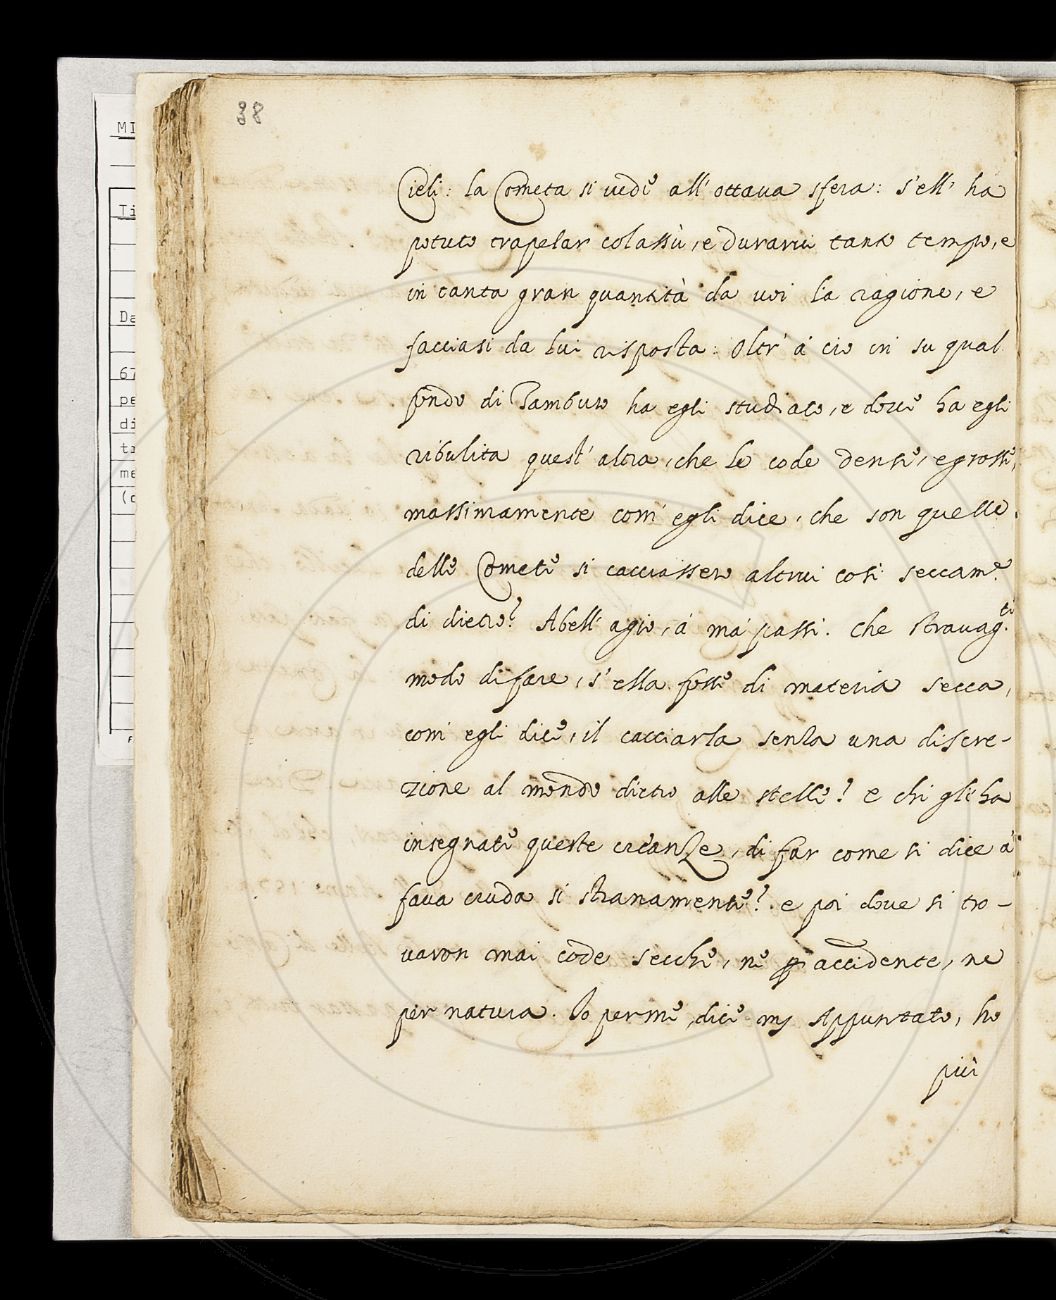 38
MI
Ti
Da
67
pe
di
ti
me
Cieli: la Cometa si vede all' ottava sfera: s'ell' ha
potuto trapelar colassù, e durarvi tanto tempo, e
in tanta gran quantità da voi la ragione, e
facciasi da lui risposta: Oltr' à cio in su qual
fondo di Tamburo ha egli studiato, e dove ha egli
ribulita quest' altra, che le code dense, e grosse,
massimamente com' egli dice, che son quelle
delle Comete si cacciassero altrui così seccam.e
di dietro? Abell' agio, à ma' passi. che stravag.ti
modo di fare, s' ella fosse di materia secca,
com' egli dice, il cacciarla senza una discre-
zione al mondo dietro alle stelle? e chi gli ha
insegnate queste creanze, di far come si dice à
fava cruda si stranamente? e poi dove si tro-
varon mai code secche, ne p accidente, ne
per natura. Io per me, dice mj Appuntato, ho
più